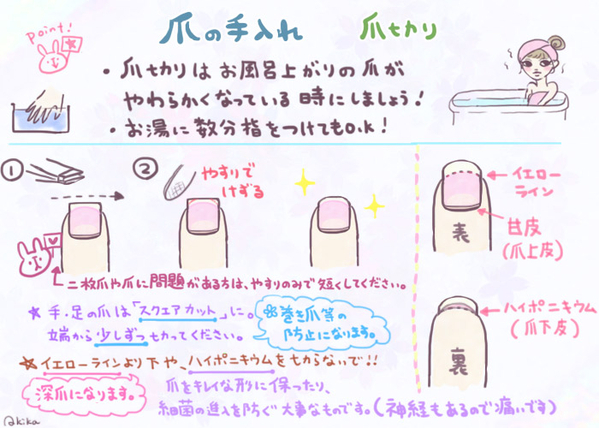 爪の手入れ 爪切り
Point!
・爪切りはお風呂上がりの爪が
やわらかくなっている時にしましょう!
・お湯に数分指をつけてもO.K!
①
② やすりで
けずる
二枚爪や爪に問題がある方は、やすりのみで短くしてください。
★手・足の爪は「スクエアカット」に。
端から少しずつ切ってください。
巻き爪等の
防止になります。
★イエローラインより下や、ハイポニキウムを切らないで!!
深爪になります。
爪をキレイな形に保ったり、
細菌の進入を防ぐ大事なものです。(神経もあるので痛いです)
イエロー
ライン
甘皮
(爪上皮)
表
ハイポニキウム
(爪下皮)
裏